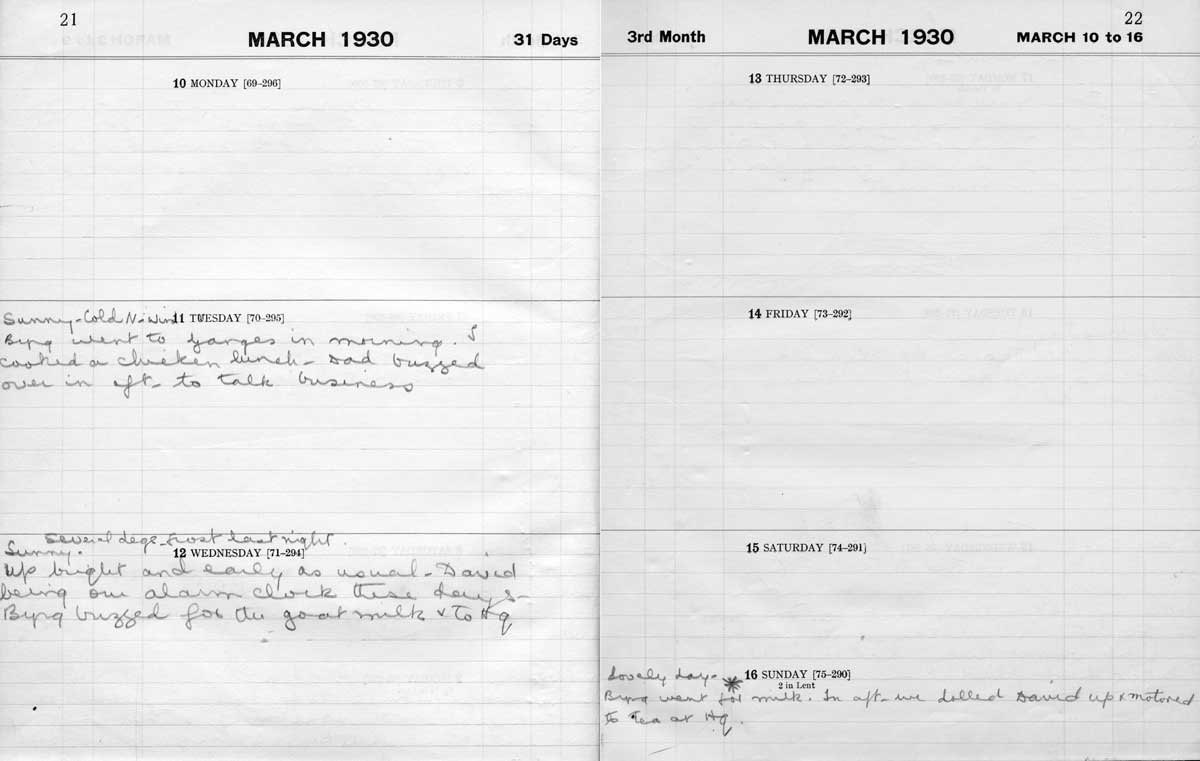 21
MARCH 1930
31 Days
10 MONDAY [69-296]
Sunny - Cold N. wind
11 TUESDAY [70-295]
Byrg went to Ganges in morning. I
cooked a chicken lunch - Dad buzzed
over in aft - to talk business
Several degs. frost last night.
Sunny.
12 WEDNESDAY [71-294]
Up bright and early as usual - David
being our alarm clock these days -
Byrg buzzed for the goat milk & to Hq
3rd Month
MARCH 1930
22
MARCH 10 to 16
13 THURSDAY [72-293]
14 FRIDAY [73-292]
15 SATURDAY [74-291]
Lovely day -
16 SUNDAY [75-290]
2 in Lent
Byrg went for milk. In aft - we dolled David up & motored
to tea at Hq.